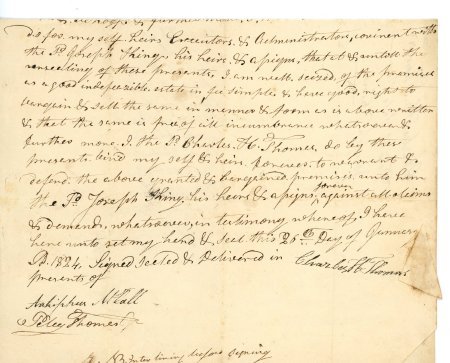 do for my self heirs Executors & Administrators, covenant with
the Sd Joseph Thing, his heirs & assigns, that at & untill the
ensealing of these presents, I am well seized of the premises
as a good indefeasible estate in fee simple, & have good right to
bargain & sell the same in manner & form as is above written
& that the same is free of all incumbrance whatsoever &
furthermore I, the Sd Charles H. Thomas, do by these
presents bind my self & heirs forever to warrant &
defend the above granted & bargained premises unto him
the Sd Joseph Thing, his heirs & assigns forever against all claims
& demands whatsoever, in testimony whereof, I have
here unto set my hand & seal this 20th Day of January
AD. 1824. Signed sealed & delivered in Charles H Thomas
presents of
McCall
Thomas
N B inter lining before signing